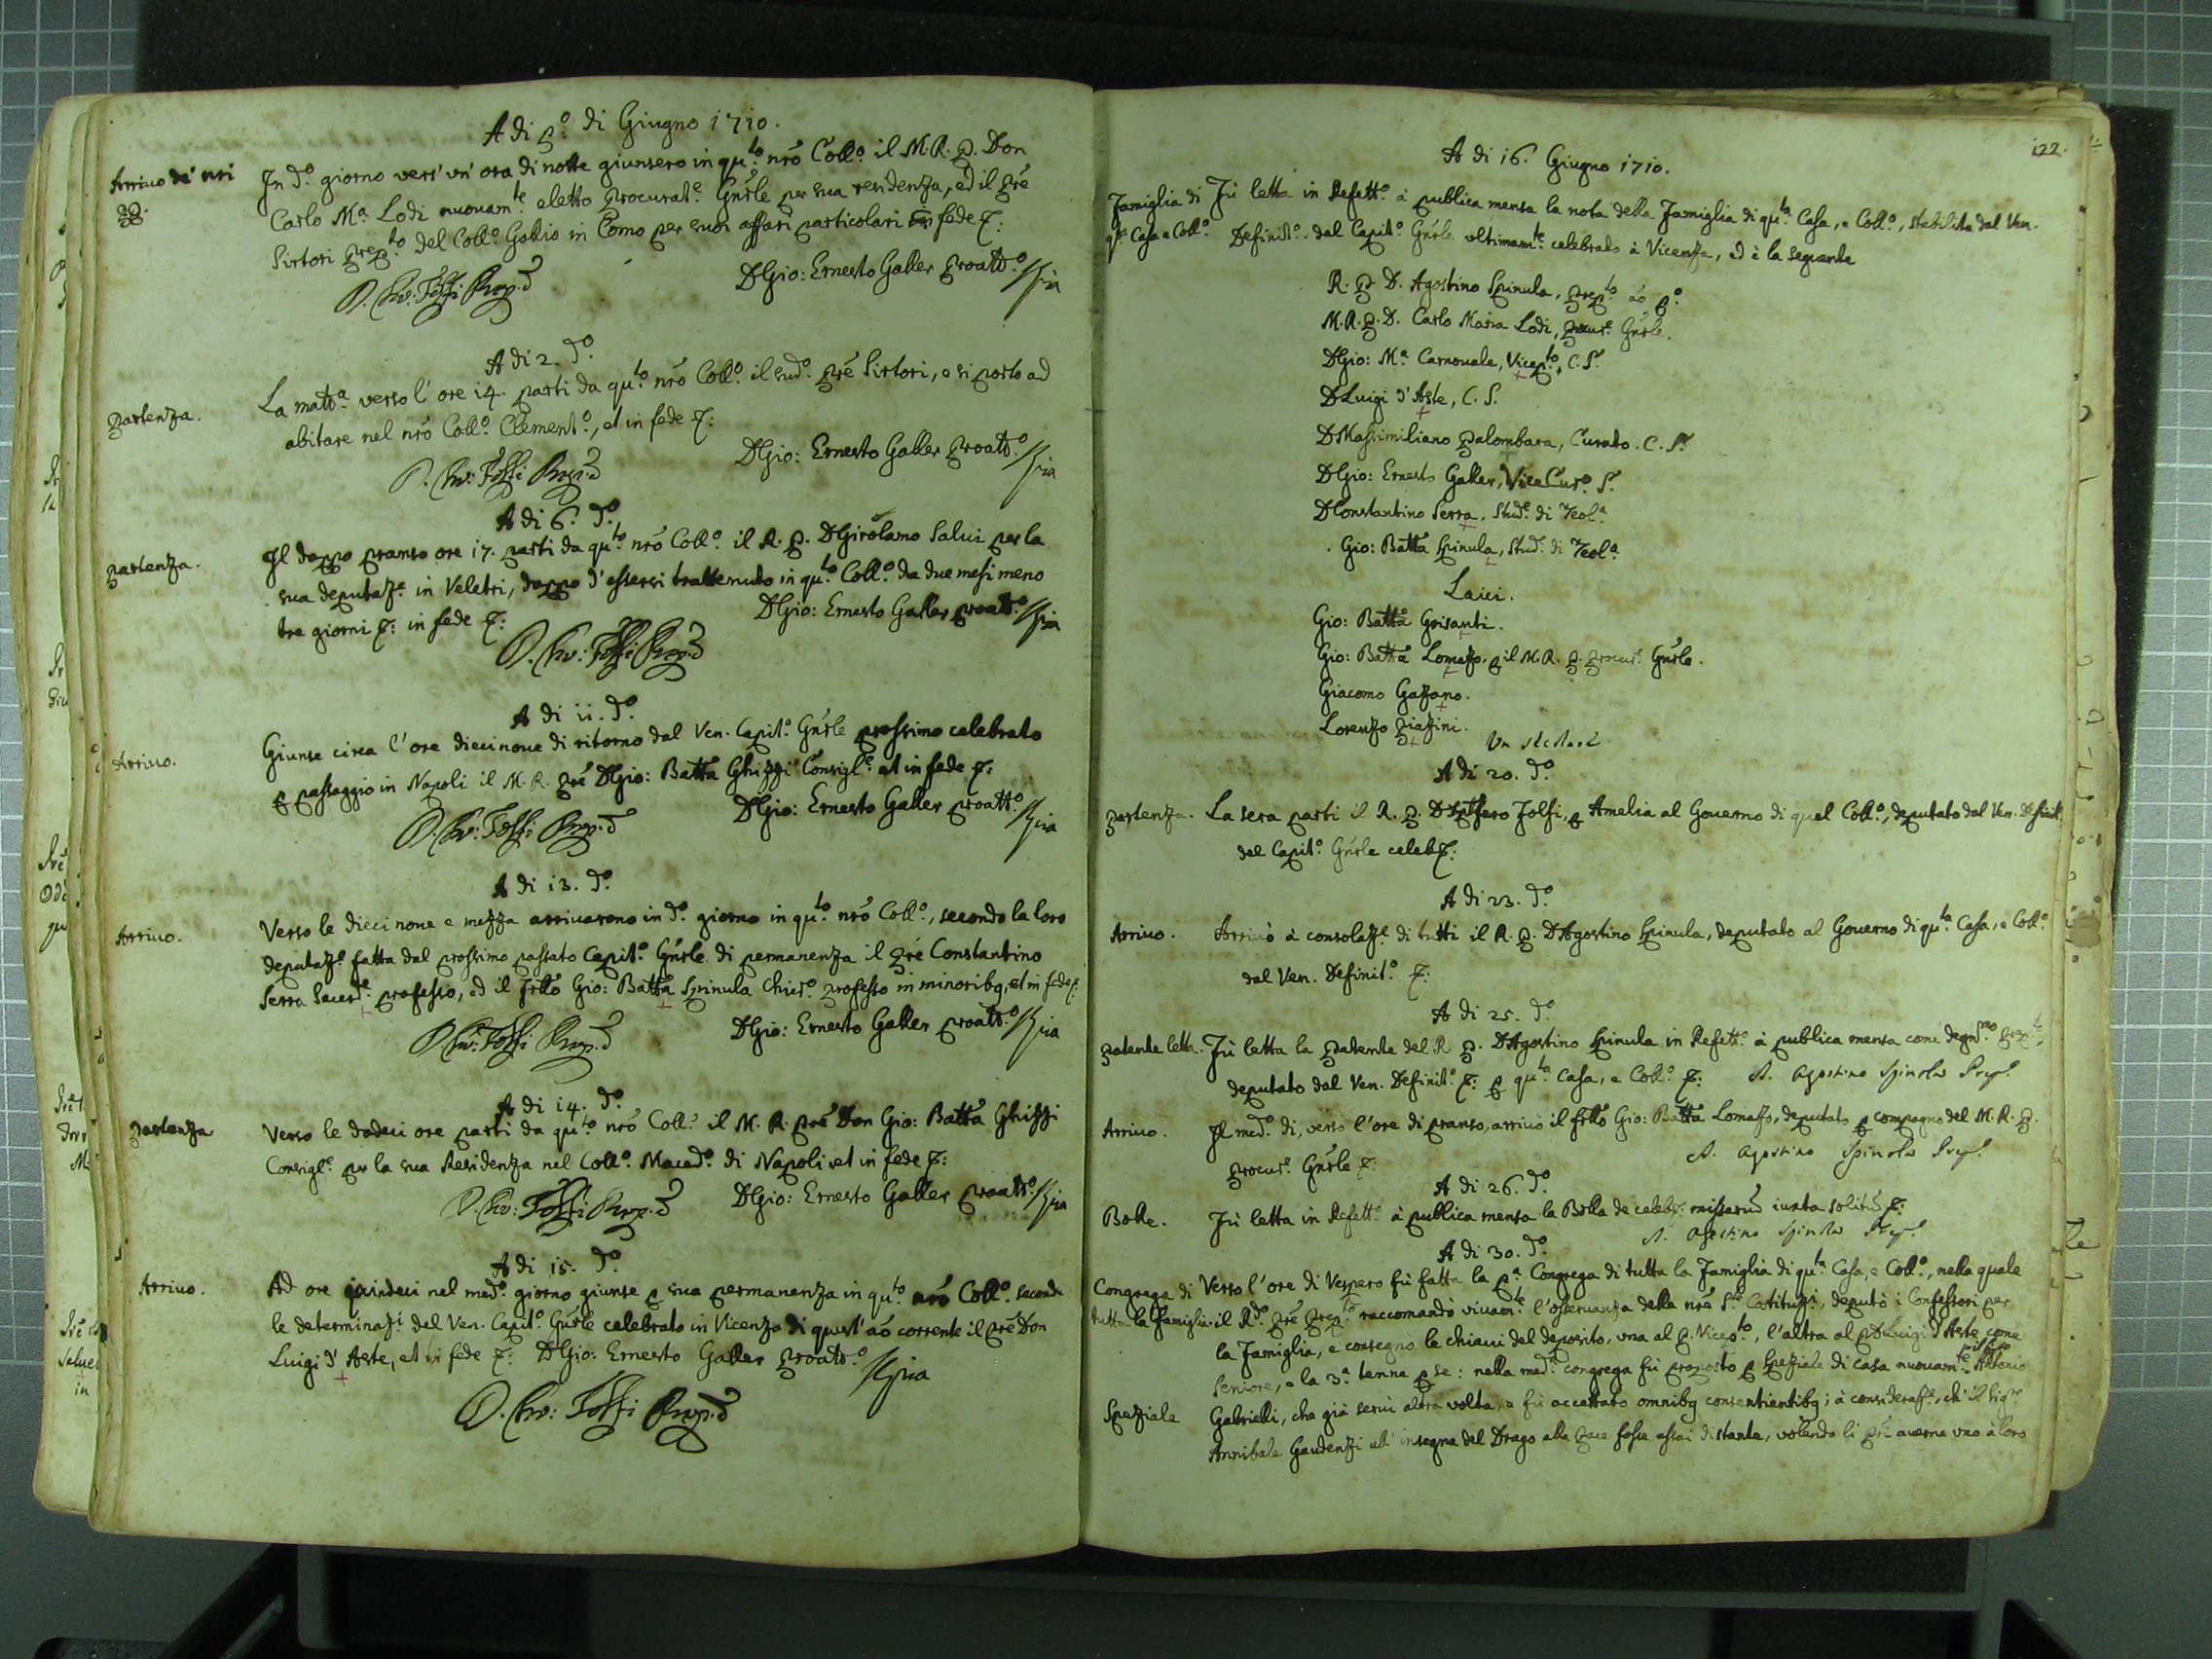 A di p.º di Giugno 1710.
Arriuo de' nri
PP.
In d.º giorno vers' un' ora di notte giunsero in qu.to nrõ Coll.º il M. R. P. Don
Carlo M.a Lodi nuouam.te eletto Procurat.e Gñrle per sua residenza, ed il Prẽ
Sirtori Prep.to del Coll.º Gallio in Como per suoi affari particolari in fede &:
D. Gio: Ernesto Galler Proatt.º
A di 2. d.º
Partenza.
La matt.a verso l' ore 14. parti da qu.to nrõ Coll.º il sud.º Prẽ Sirtori, e si portò ad
abitare nel nrõ Coll.º Clement.º, et in fede &:
D. Gio: Ernesto Galler Proatt.º
A di 6. d.º
Partenza.
Il doppo pranso ore 17. parti da qu.to nrõ Coll.º il R. P. D. Girolamo Salui per la
sua deputaz.e in Veletri, doppo d' essersi trattenuto in qu.to Coll.º da due mesi meno
tre giorni &: in fede &:
D. Gio: Ernesto Galler Proatt.º
A di 11. d.º
Arriuo.
Giunse circa l' ore diecinoue di ritorno dal Ven. Capit.º Gñrle prossimo celebrato
p passaggio in Napoli il M. R. Prẽ D. Gio: Batta Ghizzi Consigl.e et in fede &:
D. Gio: Ernesto Galler Proatt.º
A di 13. d.º
Arriuo.
Verso le diecinoue e mezza arriuarono in d.º giorno in qu.to nrõ Coll.º, secondo la loro
deputaz.e fatta dal prossimo passato Capit.º Gñrle di permanenza il Prẽ Constantino
Serra Sacerd.e professo, ed il frllo Gio: Batta Spinula Chier.º professo in minoribq, et in fede &:
D. Gio: Ernesto Galler Proatt.º
A di 14. d.º
Partenza
Verso le dodeci ore parti da qu.to nrõ Coll.º il M. R. Prẽ Don Gio: Batta Ghizzi
Consigl.e per la sua Residenza nel Coll.º Maced.º di Napoli et in fede &:
D. Gio: Ernesto Galler Proatt.º
A di 15. d.º
Arriuo.
Ad ore quindeci nel med.º giorno giunse p sua permanenza in qu.to nrõ Coll.º secondo
le determinaz.i del Ven. Capit.º Gñrle celebrato in Vicenza di quest' aõ corrente il Prẽ Don
Luigi d' Aste, et in fede &: D. Gio: Ernesto Galler Proatt.º
122.
A di 16. Giugno 1710.
Famiglia di
q.ta Casa e Coll.º
Fù letta in Refett.º à publica mensa la nota della Famiglia di qu.ta Casa, e Coll.º, stabilita dal Ven.
Definit.º del Capit.º Gñrle ultimam.te celebrato à Vicenza, ed è la seguente
R. P. D. Agostino Spinula, Prep.to aõ p.º
M. R. P. D. Carlo Maria Lodi, Procur.e Gñrle.
D. Gio: M.a Carnouale, Vicep.to, C. S.
D. Luigi d' Aste, C. S.
D. Massimiliano Palombara, Curato. C. S.
D. Gio: Ernesto Galler, Vice Cur.º S.
D. Constantino Serra, Stud.e di Teol.a
Gio: Batta Spinula, Stud.e di Teol.a
Laici.
Gio: Batta Grisanti.
Gio: Batta Lomazzo, p il M. R. P. Procur.e Gñrle.
Giacomo Gazzano.
Lorenzo Piazzini.
A di 20. d.º
Partenza.
La sera parti il R. P. D. Folfi, p Amelia al Gouerno di quel Coll.º, deputato dal Ven. Definit.
del Capit.º Gñrle celeb. &:
A di 23. d.º
Arriuo.
Arriuò à consolaz.e di tutti il R. P. D. Agostino Spinula, deputato al Gouerno di qu.ta Casa, e Coll.º
dal Ven. Definit.º &:
A di 25. d.º
Patente letta.
Fù letta la Patente del R. P. D. Agostino Spinula in Refett.º à publica mensa come degn.mo Prep.to,
deputato dal Ven. Definit.º &: p qu.ta Casa, e Coll.º &: D. Agostino Spinola Prep.
Arriuo.
Il med.º di, verso l' ore di pranso, arriuò il frllo Gio: Batta Lomazzo, deputato p compagno del M. R. P.
Procur.e Gñrle &:
D. Agostino Spinola Prep.
A di 26. d.º
Bolle.
Fù letta in Refett.º à publica mensa la Bolla de celeb. missarũ iuxta solitũ &:
D. Agostino Spinola Prep.
A di 30. d.º
Congrega di
tutta la famiglia.
Verso l' ore di Vespero fù fatta la p.a Congrega di tutta la Famiglia di qu.ta Casa, e Coll.º, nella quale
il R.do Prẽ Prep.to raccomandò viuam.te l' osseruanza delle nrẽ S.te Costituz.i, deputò i Confessori per
la Famiglia, e consegnò le chiaui del deposito, una al P. Vicep.to, l' altra al P. D. Luigi d' Aste come
seniore, e la 3.a tenne p se: nella med.a congrega fù proposto p Speziale di casa nuouam.te Antonio
Speziale
Gabrielli, che già seruì altra volta, e fù accettato omnibq consentientibq; à consideraz.e, ch' il Sig.re
Annibale Gaudenzi all' insegna del Drago alla Pace fosse assai distante, volendo li Prĩ auerne uno à loro